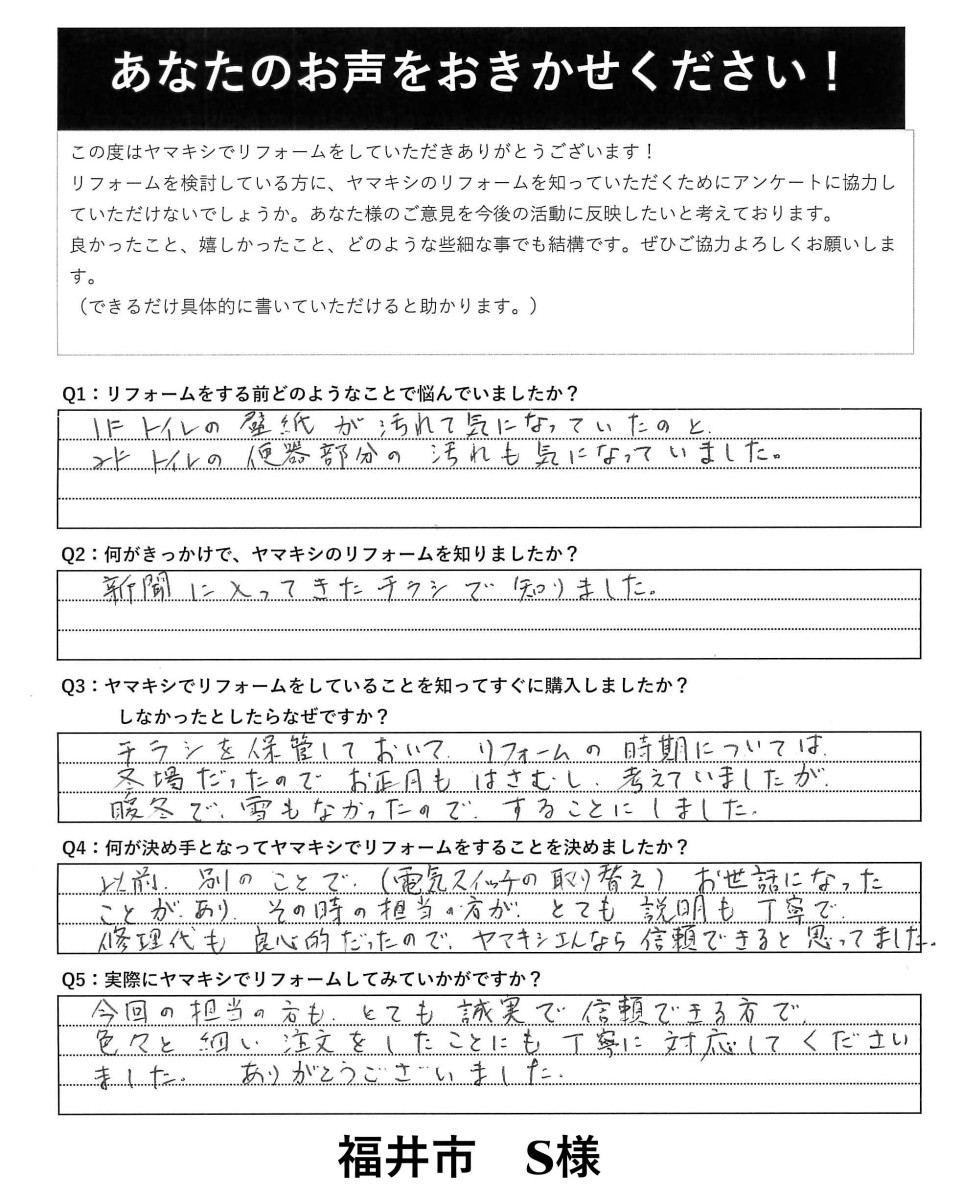 あなたのお声をおきかせください！
この度はヤマキシでリフォームをしていただきありがとうございます！
リフォームを検討している方に、ヤマキシのリフォームを知っていただくためにアンケートに協力し
ていただけないでしょうか。あなた様のご意見を今後の活動に反映したいと考えております。
良かったこと、嬉しかったこと、どのような些細な事でも結構です。ぜひご協力よろしくお願いしま
す。
（できるだけ具体的に書いていただけると助かります。）
Q1：リフォームをする前どのようなことで悩んでいましたか？
1F トイレの 壁紙 が 汚れて気になっていたのと、
2F トイレの 便器部分の 汚れも気になっていました。
Q2：何がきっかけで、ヤマキシのリフォームを知りましたか？
新聞に入ってきたチラシで知りました。
Q3：ヤマキシでリフォームをしていることを知ってすぐに購入しましたか？
しなかったとしたらなぜですか？
チラシを保管しておいて、リフォームの時期については、
冬場だったのでお正月もはさむし、考えていましたが、
暖冬で、雪もなかったので、することにしました。
Q4：何が決め手となってヤマキシでリフォームをすることを決めましたか？
以前、別のことで、(電気スイッチの取り替え) お世話になった
ことがあり、その時の担当の方が、とても説明も丁寧で、
修理代も良心的だったので、ヤマキシさんなら信頼できると思ってました。
Q5：実際にヤマキシでリフォームしてみていかがですか？
今回の担当の方も、とても誠実で信頼できる方で、
色々と細い注文をしたことにも丁寧に対応してください
ました。 ありがとうございました。
福井市 S様